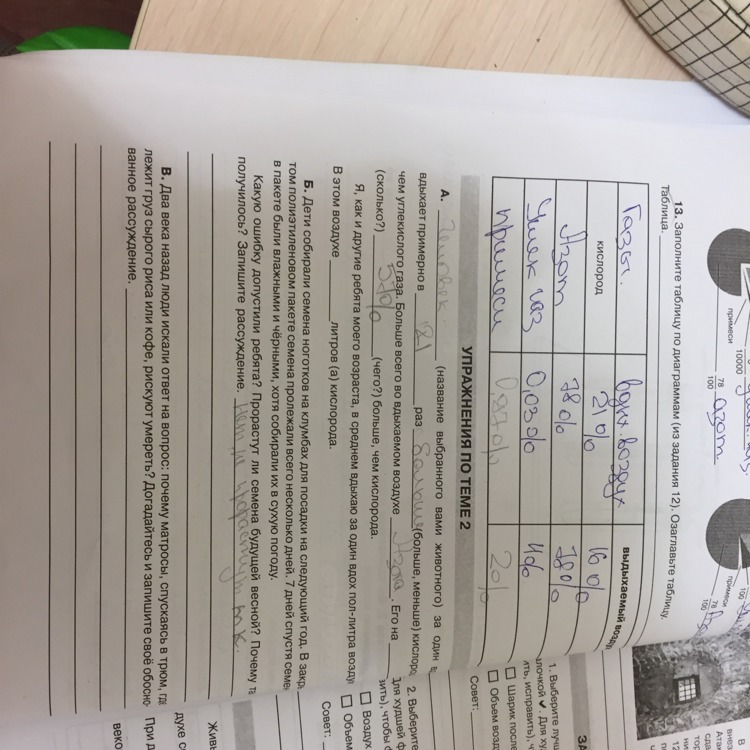 примеси
10000
78
100
азот
примеси
100
78
100
13. Заполните таблицу по диаграммам (из задания 12). Озаглавьте таблицу.
таблица.
Газы. вдых воздух выдыхаемый возду
кислород 21% 16%
Азот 78% 78%
Углек газ 0,03% 4%
примеси 0,97% 2%
УПРАЖНЕНИЯ ПО ТЕМЕ 2
А. Человек (название выбранного вами животного) за один в
вдыхает примерно в 21 раз больше (больше, меньше) кислоро
чем углекислого газа. Больше всего во вдыхаемом воздухе Азота. Его на
(сколько?) 57% (чего?) больше, чем кислорода.
Я, как и другие ребята моего возраста, в среднем вдыхаю за один вдох пол-литра возду
В этом воздухе литров (а) кислорода.
Б. Дети собирали семена ноготков на клумбах для посадки на следующий год. В закр
том полиэтиленовом пакете семена пролежали всего несколько дней. 7 дней спустя семе
в пакете были влажными и чёрными, хотя собирали их в сухую погоду.
Какую ошибку допустили ребята? Прорастут ли семена будущей весной? Почему та
получилось? Запишите рассуждение. нет не прорастут т.к.
В. Два века назад люди искали ответ на вопрос: почему матросы, спускаясь в трюм, гд
лежит груз сырого риса или кофе, рискуют умереть? Догадайтесь и запишите своё обосно
ванное рассуждение.
ЗА
1. Выберите лучш
ить, исправить), ч
алочкой ✔. Для ху
Шарик после
Объем возд
Совет:
2. Выберите
Для худшей ф
вить), чтобы ф
Воздух
Объем
Совет:
Живы
духе со
При д
веко